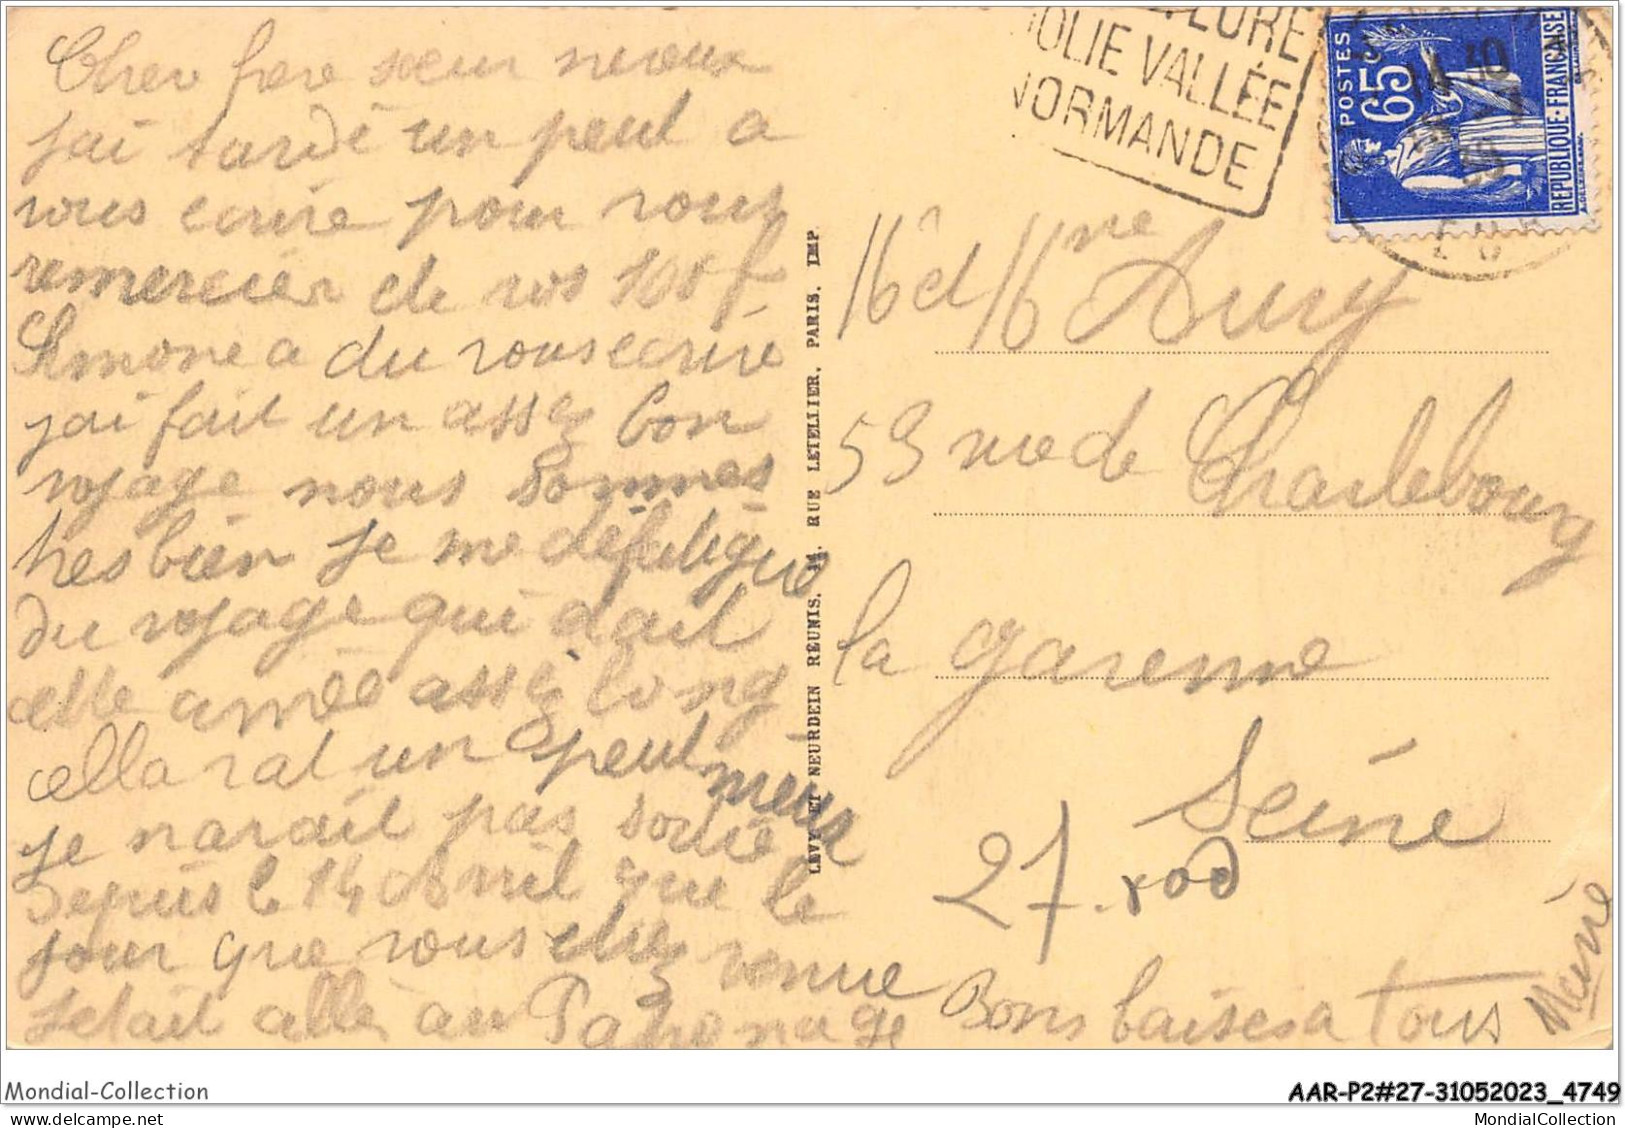 Cher frere sœur neveux
jai tardé un peut a
vous ecrire pour vous
remercier de vos 100 f
Simone a du vous ecrire
jai fait un assez bon
voyage nous sommes
tres bien je me défatigue
du voyage qui dait
cette année assez long
cella vat un peut mieux
je navait pas sortie
depuis le 14 Avril que le
jour que vous etiez venue
jetait allé au Patronage
LEVY ET NEURDEIN RÉUNIS. RUE LETELLIER, PARIS. IMP.
EURE
JOLIE VALLÉE
NORMANDE
POSTES
65
REPUBLIQUE·FRANÇAISE
Aury
59 rue de Charlebourg
la garenne
Seine
27.
Bons baises a tous
Mondial-Collection
AAR-P2#27-31052023_4749
MondialCollection